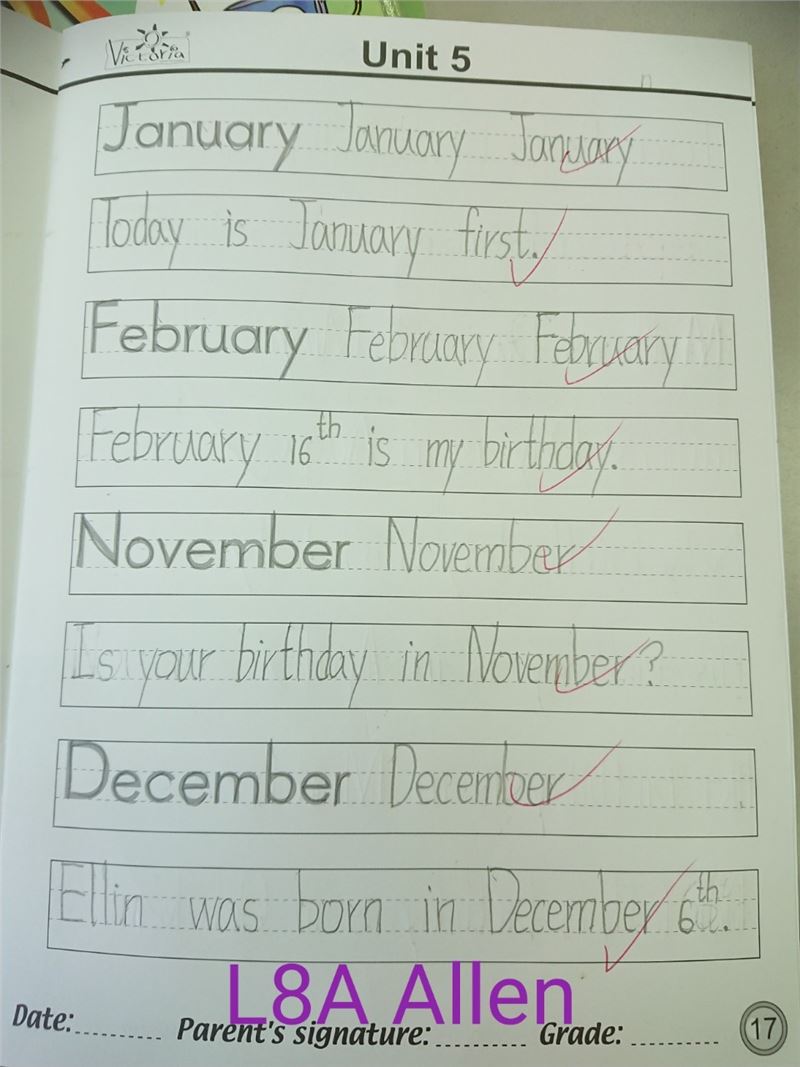 Victoria
Unit 5
January January January
Today is January first.
February February February
February 16th is my birthday.
November November
Is your birthday in November?
December December
Ellin was born in December 6th.
L8A Allen
Date:......... Parent's signature:......... Grade:......... 17